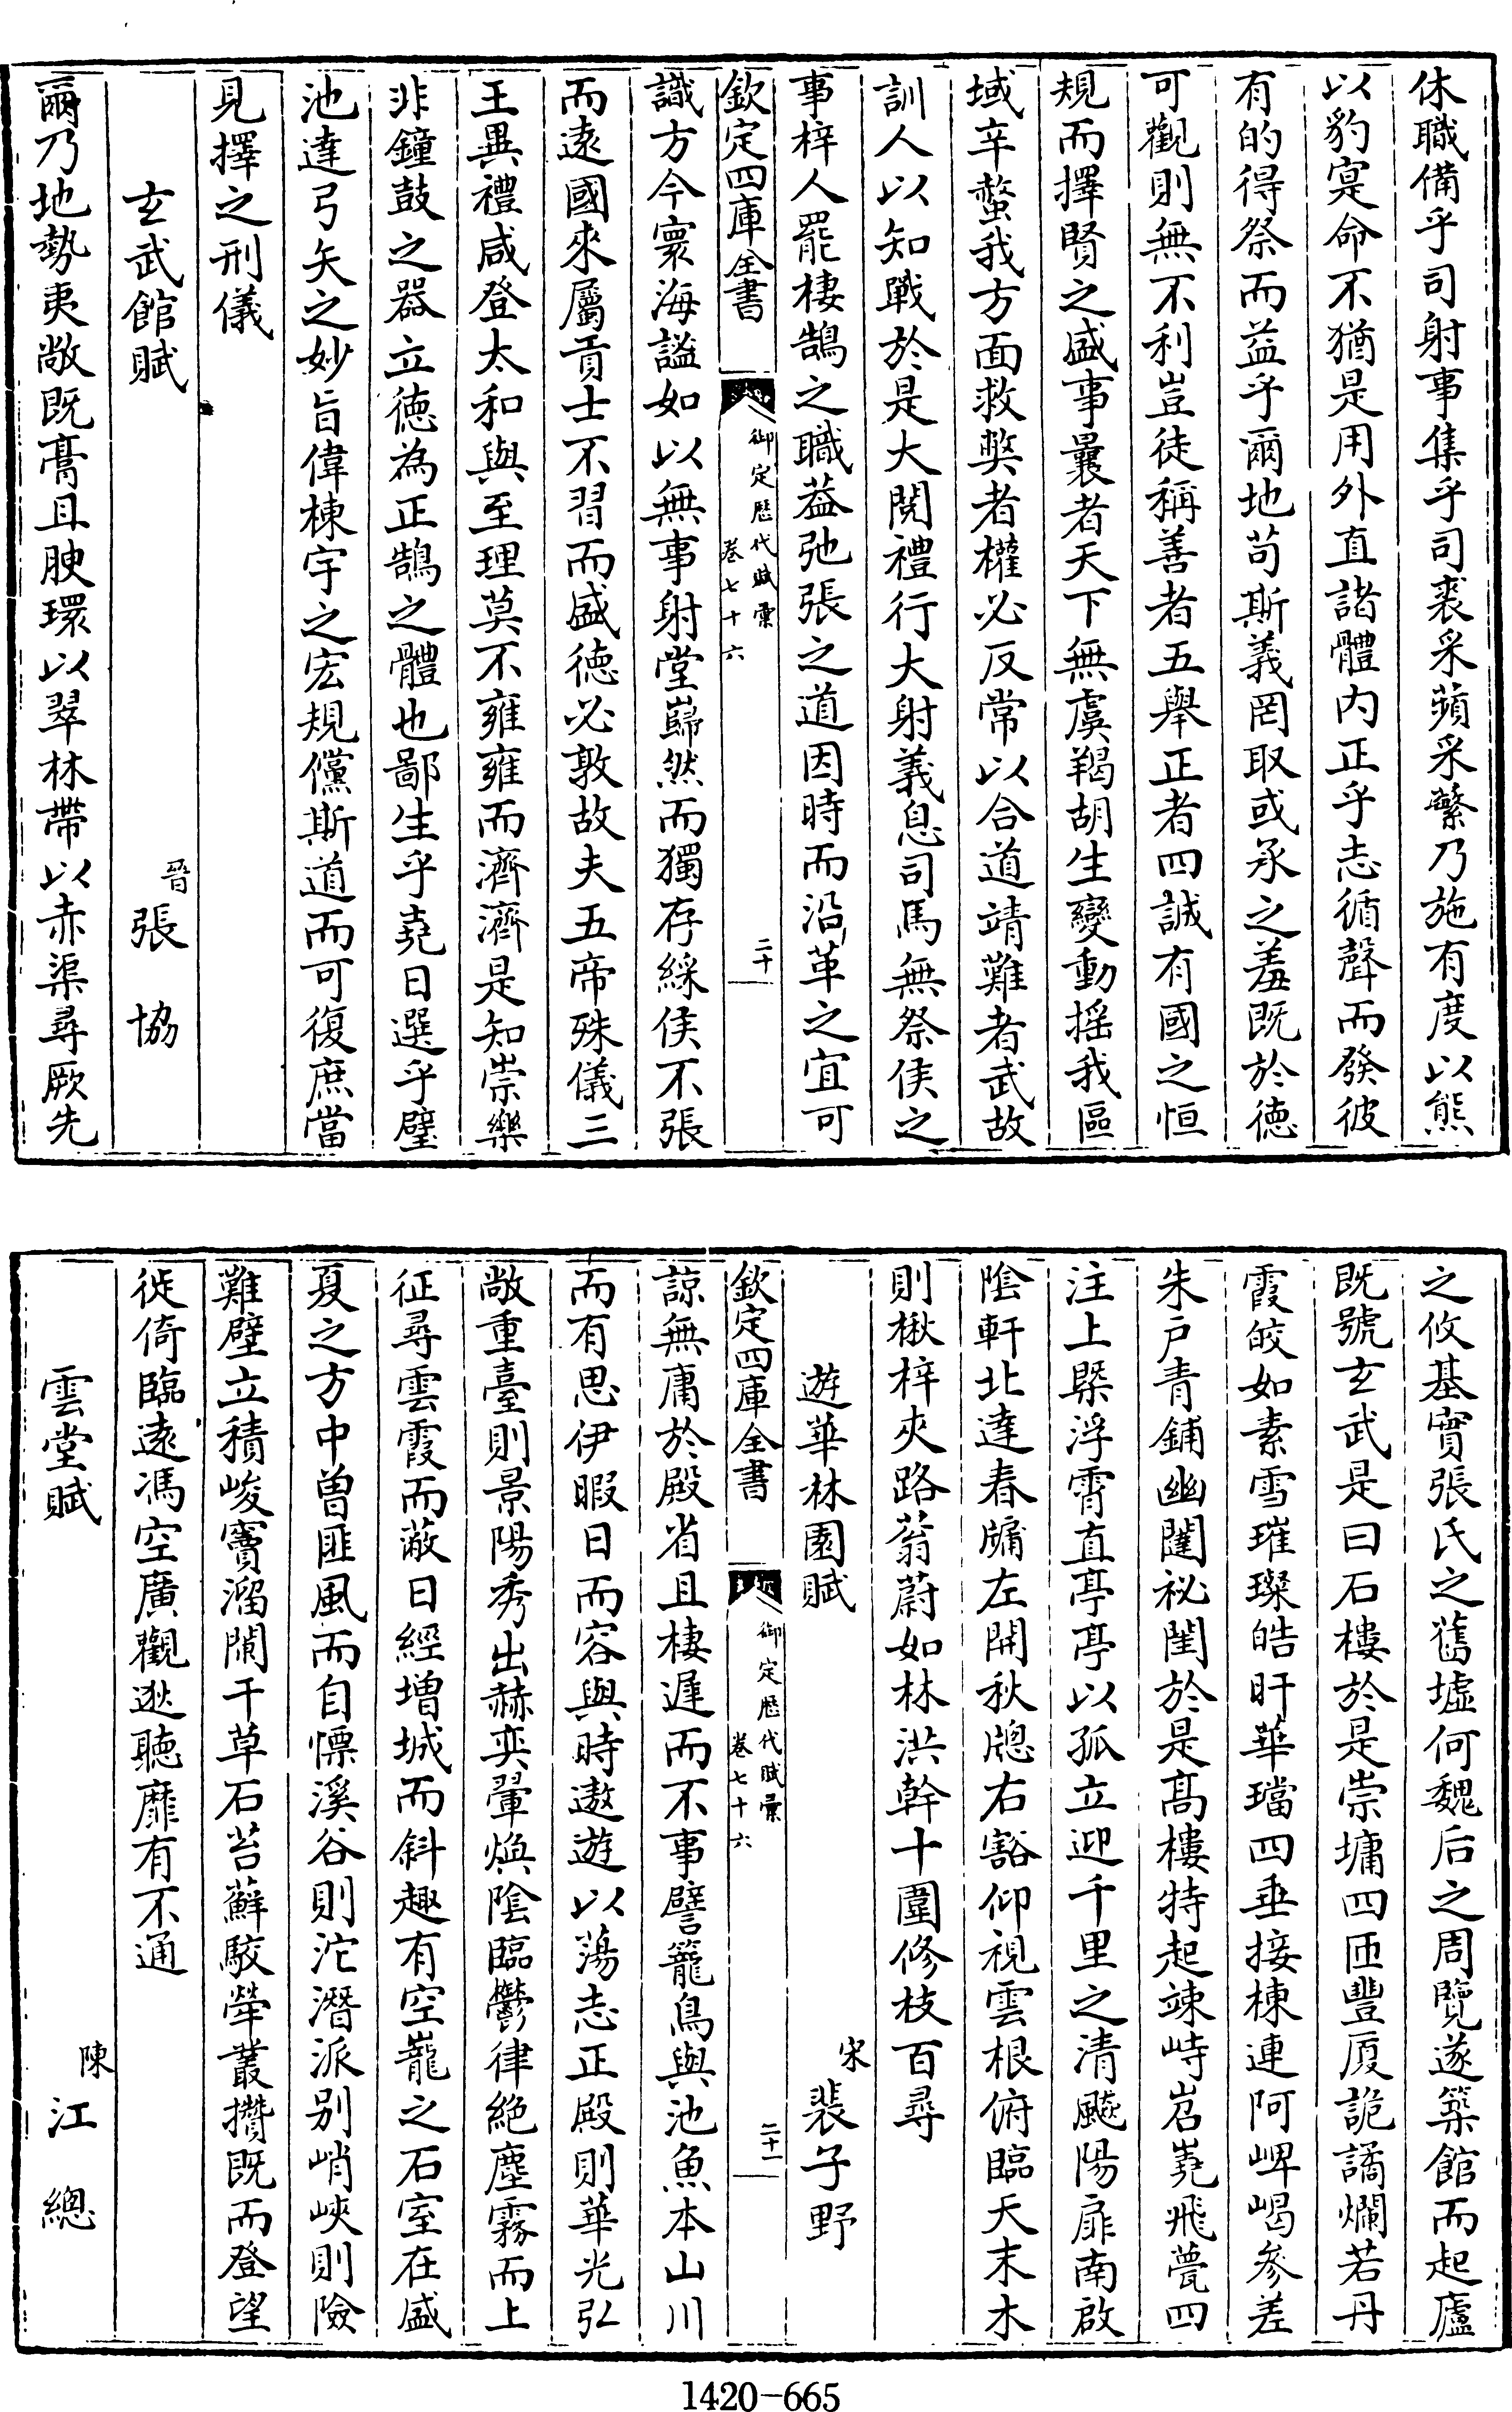 休職備乎司射事集乎司裘采蘋采蘩乃施有度以熊
以豹寔命不猶是用外直諸體内正乎志循聲而發彼
有的得祭而益乎爾地苟斯義罔取或承之羞既於徳
可觀則無不利豈徒稱善者五舉正者四誠有國之恒
規而擇賢之盛事曩者天下無虞羯胡生變動揺我區
域辛螫我方面救獘者權必反常以合道靖難者武故
訓人以知戰於是大閱禮行大射義息司馬無祭侯之
事梓人罷棲鵠之職葢弛張之道因時而沿革之宜可
欽定四庫全書
御定歴代賦彙
卷七十六
二十
識方今寰海謐如以無事射堂巋然而獨存綵侯不張
而逺國來屬貢士不習而盛徳必敦故夫五帝殊儀三
王異禮咸登太和與至理莫不雍雍而濟濟是知崇樂
非鐘鼓之器立徳為正鵠之體也鄙生乎堯日選乎璧
池達弓矢之妙旨偉棟宇之宏規儻斯道而可復庶當
見擇之刑儀
玄武館賦
晉張協
爾乃地勢夷敞既膏且腴環以翠林帶以赤渠尋厥先
之攸基實張氏之舊墟何魏后之周覽遂築館而起廬
既號玄武是曰石樓於是崇墉四匝豐厦詭譎爛若丹
霞皎如素雪璀璨皓旰華璫四垂接棟連阿岬嵑參差
朱戸青鋪幽闥祕闈於是髙樓特起竦峙岧嶤飛甍四
注上槩浮霄直亭亭以孤立迎千里之清飈陽扉南啟
隂軒北達春牖左開秋牎右豁仰視雲根俯臨天末木
則楸梓夾路蓊蔚如林洪幹十圍修枝百尋
遊華林園賦
宋裴子野
欽定四庫全書
御定歴代賦彙
卷七十六
二十一
諒無庸於殿省且棲遲而不事譬籠鳥與池魚本山川
而有思伊暇日而容與時遨遊以蕩志正殿則華光弘
敞重臺則景陽秀出赫奕翬煥隂臨鬱律絶塵霧而上
征尋雲霞而蔽日經増城而斜趣有空巃之石室在盛
夏之方中曽匪風而自慄溪谷則沱潛派别峭峽則險
難壁立積峻竇溜闌干草石苔蘚駮犖叢攢既而登望
徙倚臨逺馮空廣觀逖聽靡有不通
雲堂賦
陳江總
1420-665